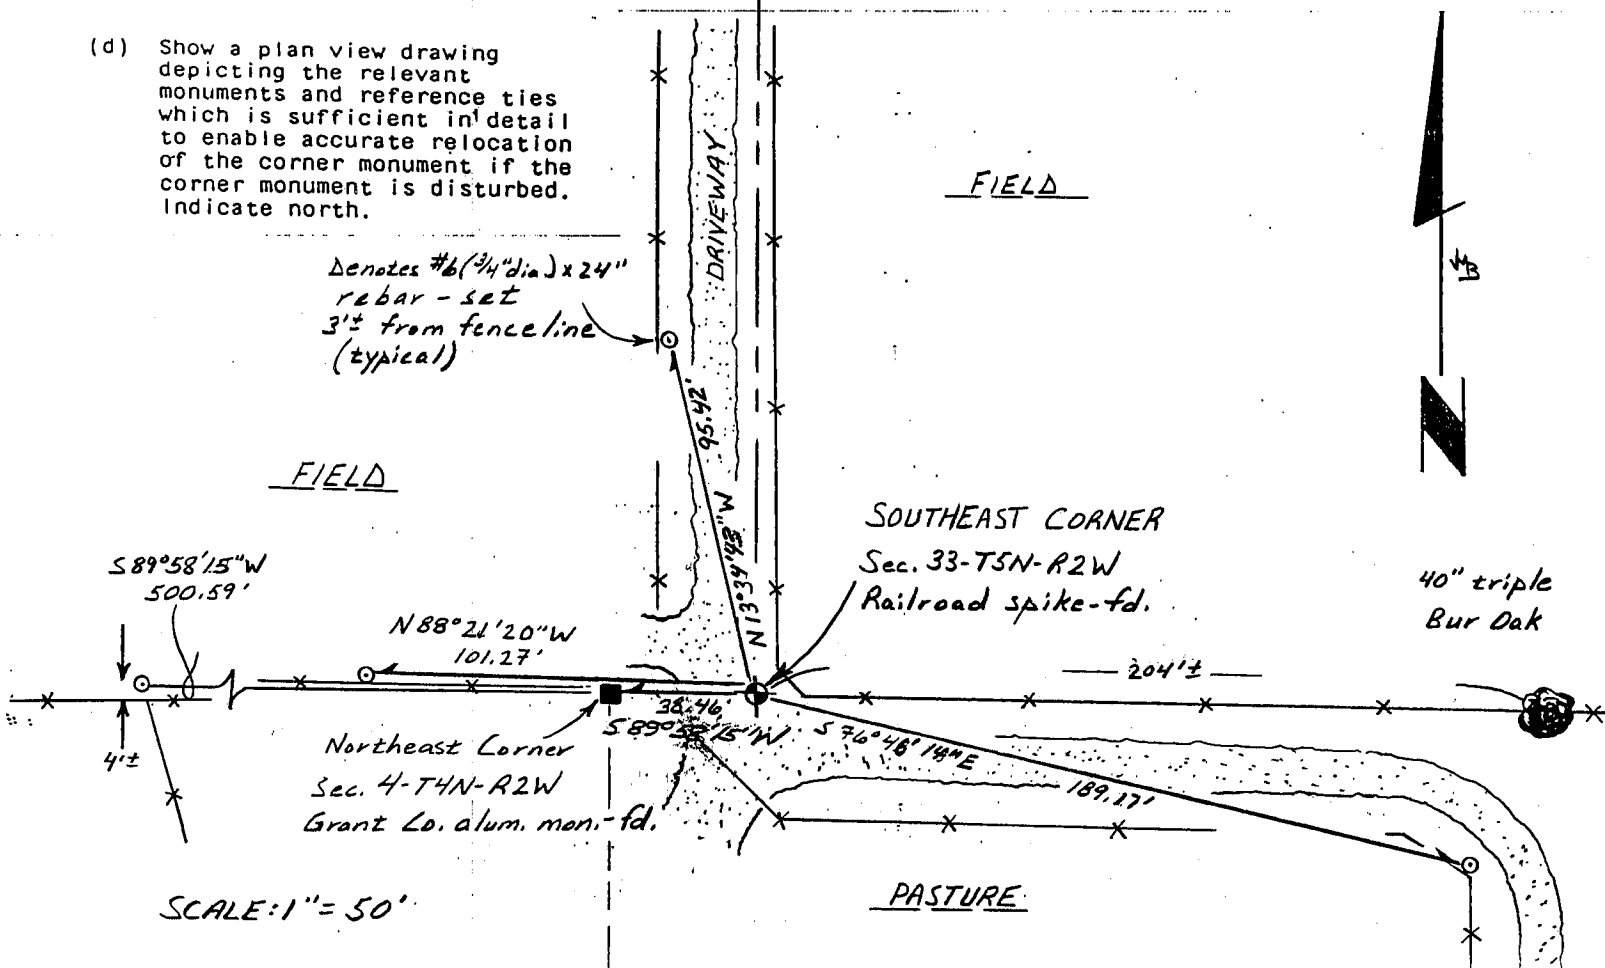 (d) Show a plan view drawing
depicting the relevant
monuments and reference ties
which is sufficient in detail
to enable accurate relocation
of the corner monument if the
corner monument is disturbed.
Indicate north.
DRIVEWAY
FIELD
Denotes #6 (3/4" dia.) x 24"
rebar - set
3'± from fence line
(typical)
95.42'
N 13°34'43" W
FIELD
N
SOUTHEAST CORNER
Sec. 33-T5N-R2W
Railroad spike-fd.
40" triple
Bur Oak
S 89°58'15" W
500.59'
N 88°21'20" W
101.27'
204'±
38.46'
S 89°58'15" W
S 76°48' E
189.17'
4'±
Northeast Corner
Sec. 4-T4N-R2W
Grant Co. alum. mon.-fd.
SCALE: 1" = 50'
PASTURE